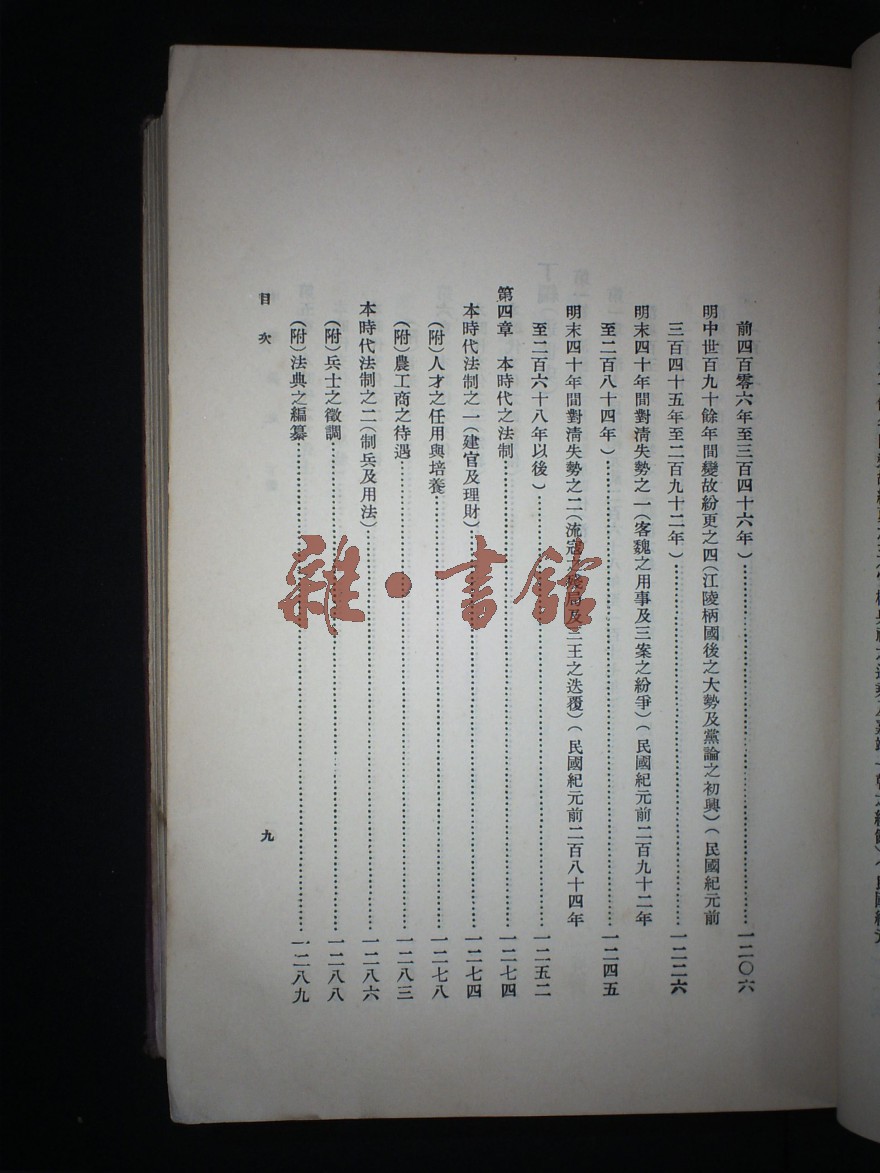 前四百零六年至三百四十六年）……一二〇六
明中世百九十餘年間變故紛更之四（江陵柄國後之大勢及黨論之初興）（民國紀元前
三百四十五年至二百九十二年）……一二二六
明末四十年間對淸失勢之一（客魏之用事及三案之紛爭）（民國紀元前二百九十二年
至二百八十四年）……一二四五
明末四十年間對淸失勢之二（流寇之殘局及三王之迭覆）（民國紀元前二百八十四年
至二百六十八年以後）……一二五二
第四章　本時代之法制……一二七四
本時代法制之一（建官及理財）……一二七四
（附）人才之任用與培養……一二七八
（附）農工商之待遇……一二八三
本時代法制之二（制兵及用法）……一二八六
（附）兵士之徵調……一二八八
（附）法典之編纂……一二八九
目次
九
雜・書館